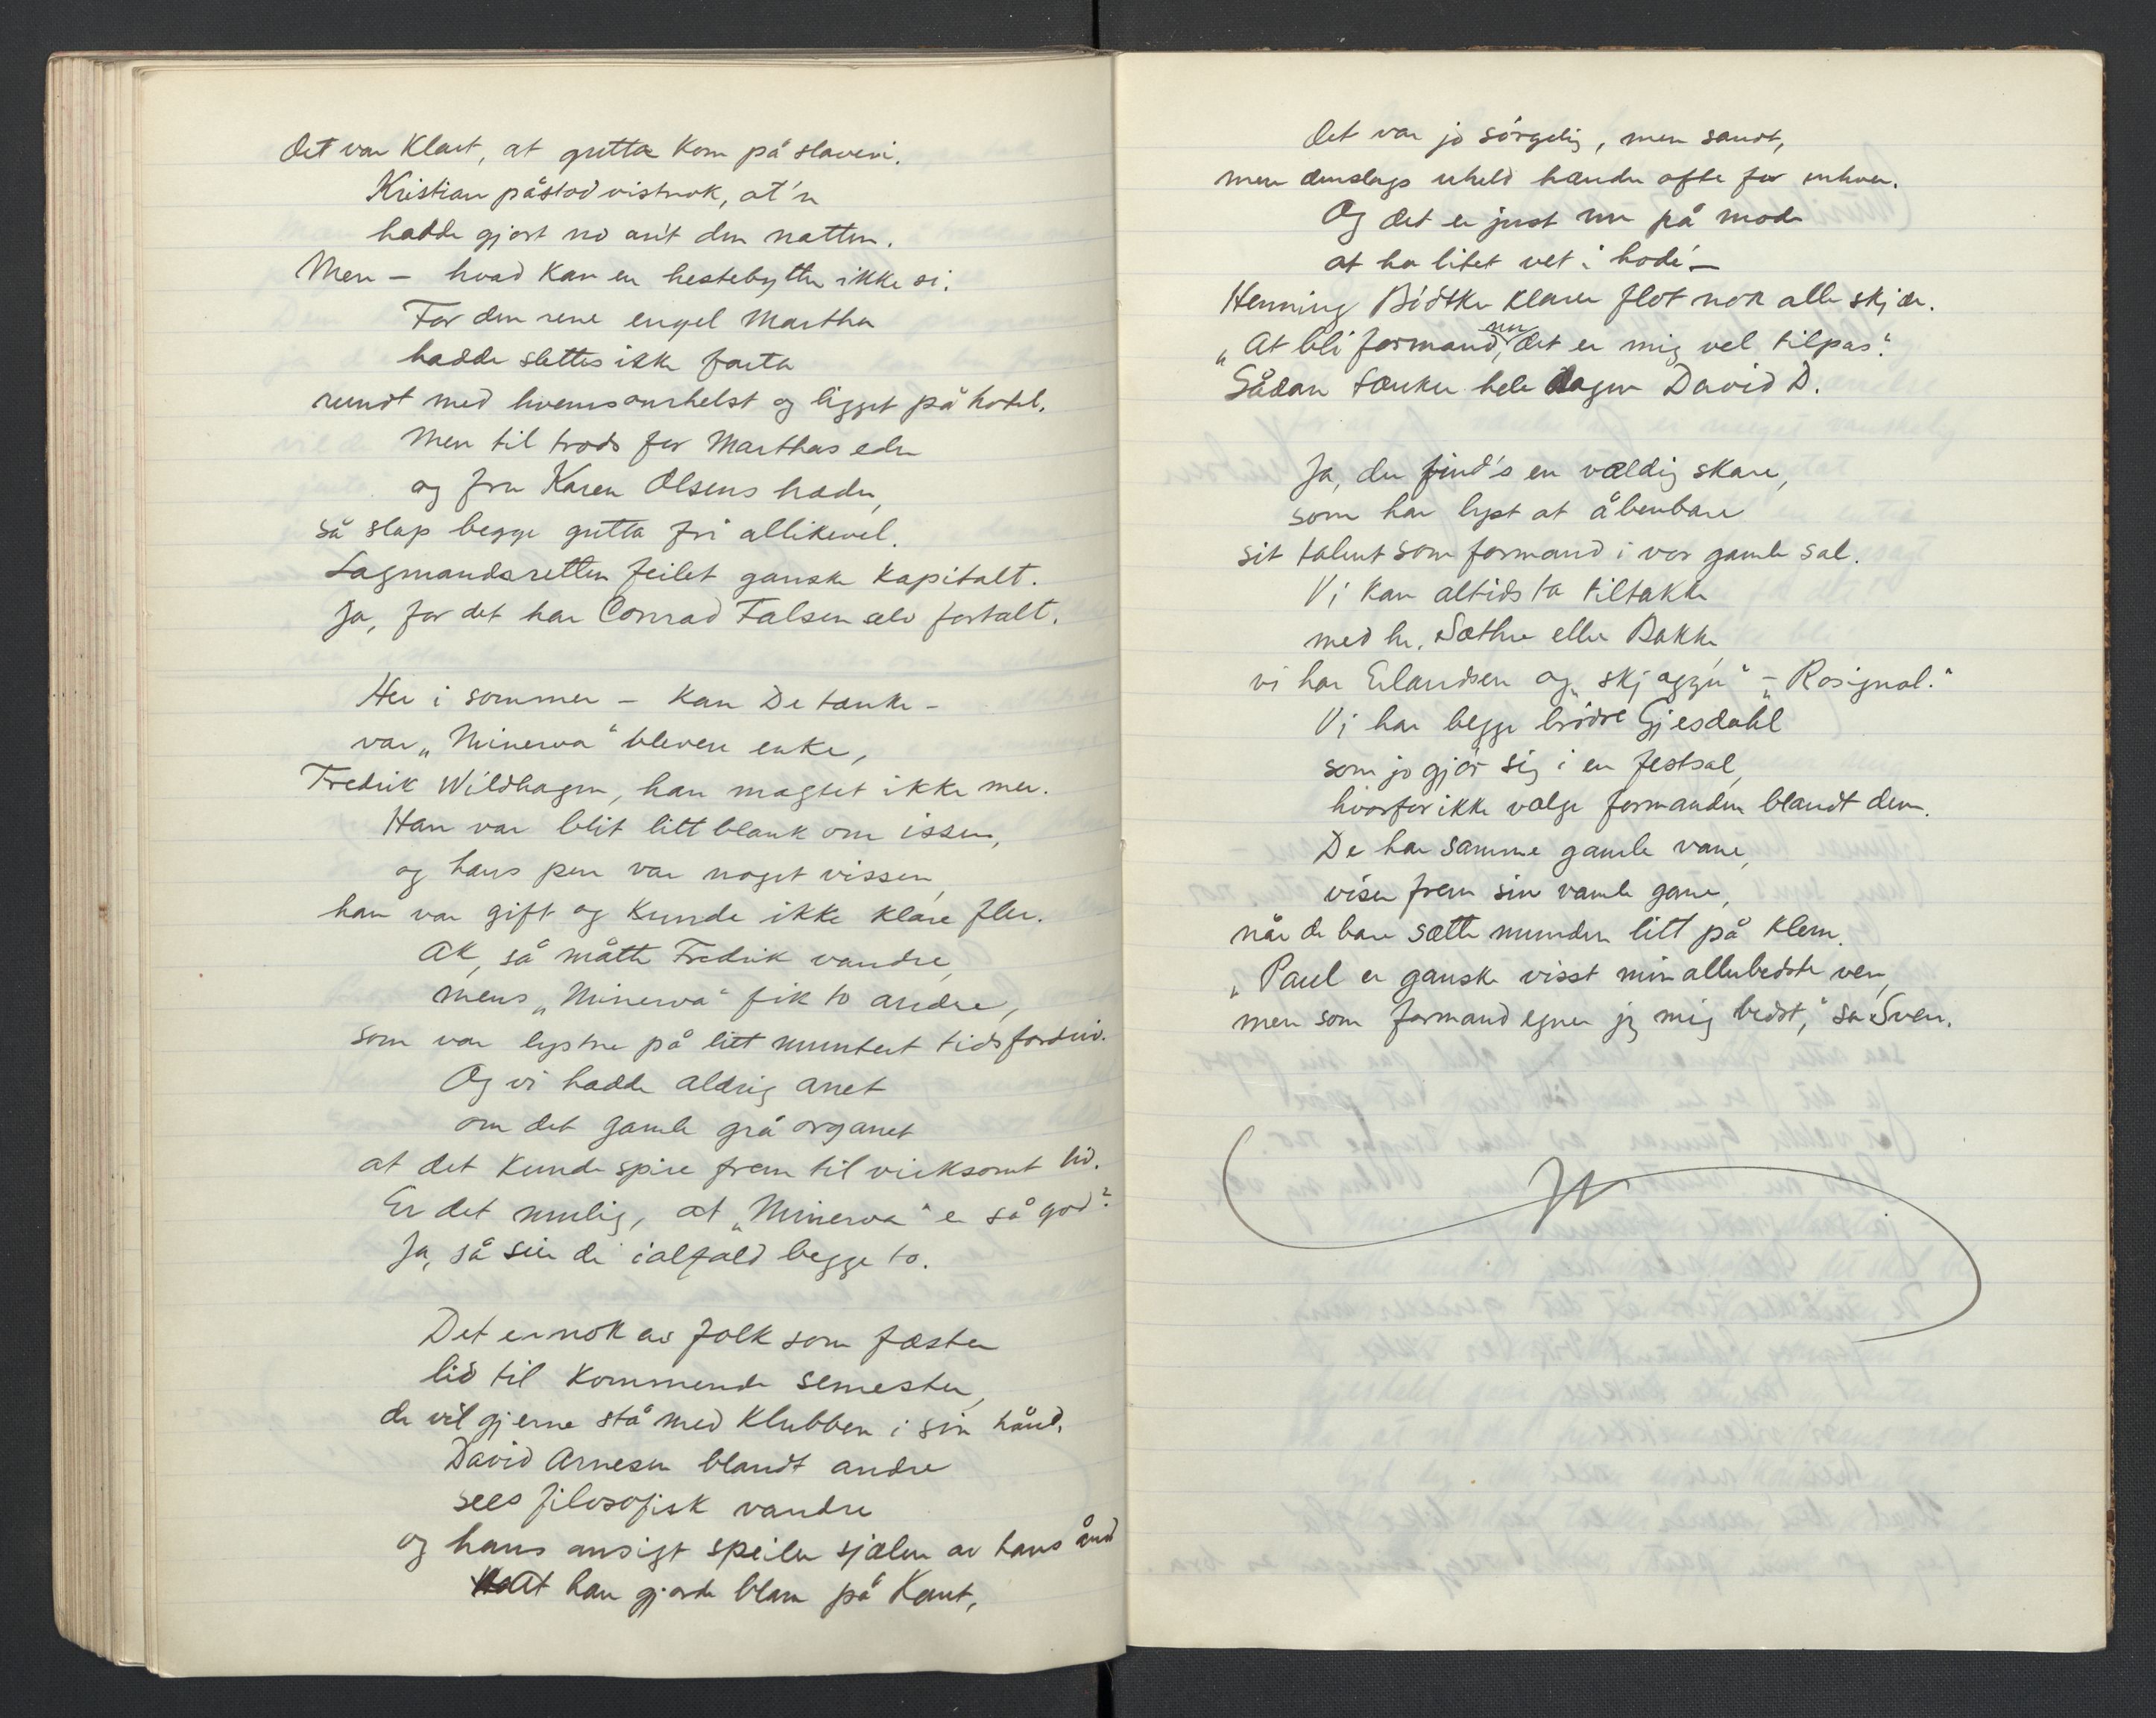 Det var klart, at gutta kom på slaveri.
Kristian påstod vistnok, at'n
hadde gjort no an't den natten.
Men – hvad kan en hestebytter ikke si.
For den rene engel Martha
hadde slettes ikke farta
rundt med hvemsomhelst og ligget på hotel.
Men til trods for Marthas eder
og fru Karen Olsens hæder,
så slap begge gutta fri allikevel.
Lagmandsretten feilet ganske kapitalt.
Ja, for det har Conrad Falsen selv fortalt.
Her i sommer – kan De tænke –
var „Minerva" bleven enke,
Fredrik Wildhagen, han magtet ikke mer.
Han var blit litt blank om issen,
og hans pen var noget vissen,
han var gift og kunde ikke klare fler.
Ak, så måtte Fredrik vandre,
mens „Minerva" fik to andre,
som var lystne på litt muntert tidsfordriv.
Og vi hadde aldrig anet
om det gamle grå organet
at det kunde spire frem til virksomt liv.
Er det mulig, at „Minerva" er så god?
Ja, så sier de ialfald begge to.
Det er nok av folk som fæster
lid til kommende semester,
de vil gjerne stå med klubben i sin hånd.
David Arnesen blandt andre
sees filosofisk vandre
og hans ansigt speiler sjælen av hans ånd
At han gjorde blam på Kant,
det var jo sørgelig, men sandt,
men denslags uheld hænder ofte for enhver.
Og det er just nu på mode
at ha litet vet i hode' –
Henning Bødtker klarer flot nok alle skjær.
„At bli formand nu, det er mig vel tilpas".
Sådan tænker hele dagen David D.
Ja, der find's en vældig skare,
som har lyst at åbenbare
sit talent som formand i vor gamle sal.
Vi kan altids ta tiltakke
med hr. Sæthre eller Bakke,
vi har Erlandsen og „skjægge'" – „Rosignol."
Vi har begge brødre Gjesdahl
som jo gjør sig i en festsal,
hvorfor ikke vælge formanden blandt dem.
De har samme gamle vane,
viser frem sin vamle gane,
når de bare sætte munden litt på klem.
„Paul er ganske visst min allerbedste ven,
men som formand egner jeg mig bedst," sa Sven.